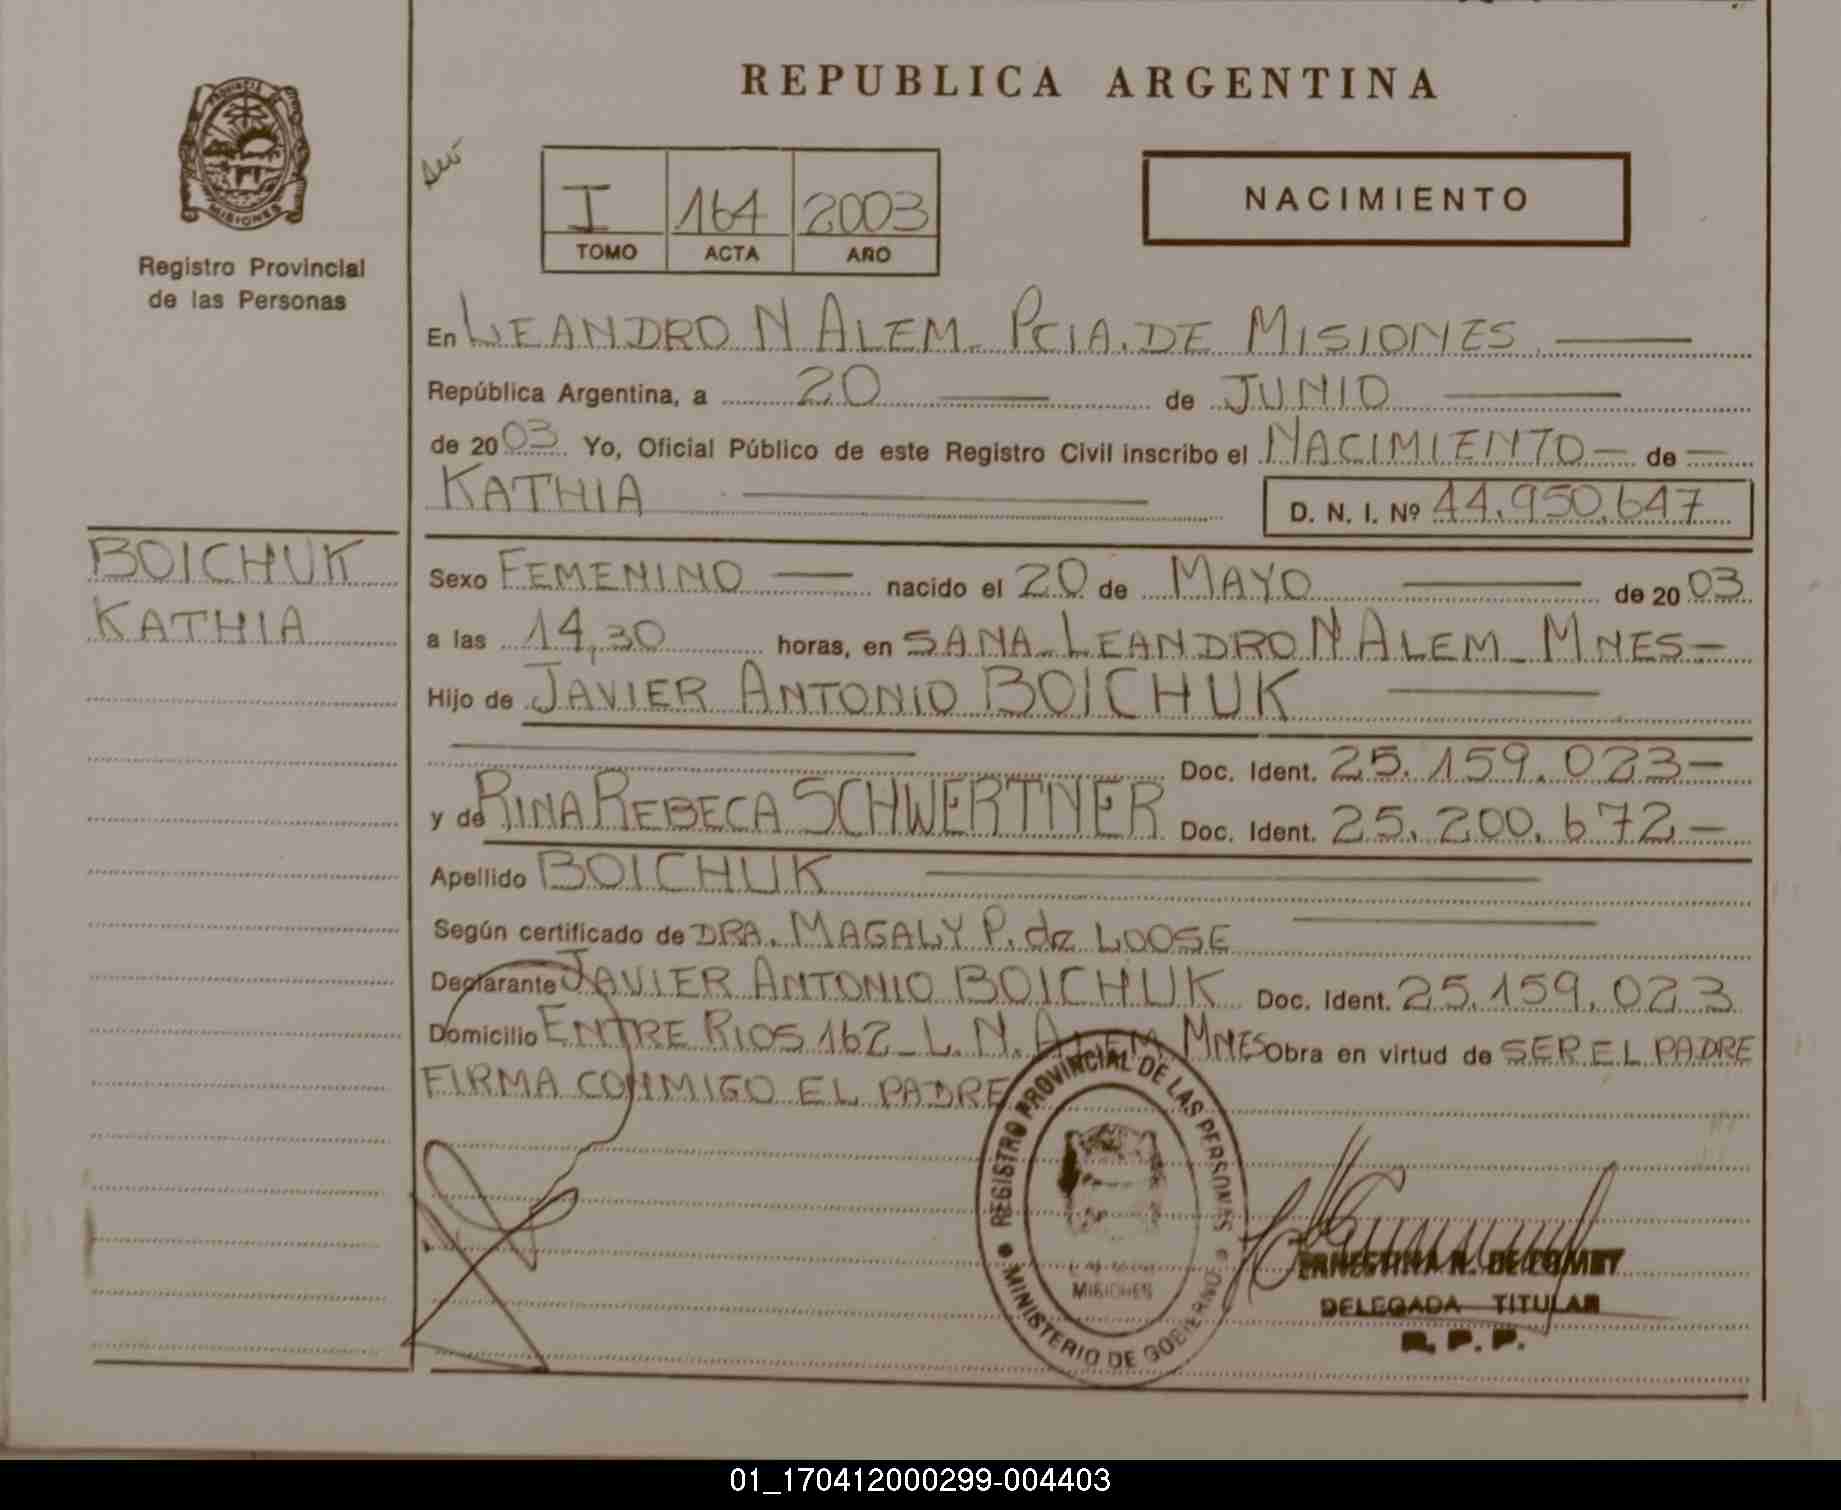 REPUBLICA ARGENTINA
PROVINCIA DE
MISIONES
Registro Provincial
de las Personas
I 164 2003
TOMO ACTA AÑO
NACIMIENTO
En LEANDRO N ALEM - PCIA. DE MISIONES
República Argentina, a 20 de JUNIO
de 2003 Yo, Oficial Público de este Registro Civil inscribo el NACIMIENTO - de -
KATHIA
D. N. I. Nº 44.950.647
BOICHUK
KATHIA
Sexo FEMENINO nacido el 20 de MAYO de 2003
a las 14,30 horas, en SANA. LEANDRO N ALEM - MNES -
Hijo de JAVIER ANTONIO BOICHUK
Doc. Ident. 25.159.023 -
y de RINA REBECA SCHWERTNER Doc. Ident. 25.200.672 -
Apellido BOICHUK
Según certificado de DRA. MAGALY P. de LOOSE
Declarante JAVIER ANTONIO BOICHUK Doc. Ident. 25.159.023
Domicilio ENTRE RIOS 162 - L. N. ALEM MNES Obra en virtud de SER EL PADRE
FIRMA CONMIGO EL PADRE
REGISTRO PROVINCIAL DE LAS PERSONAS
MISIONES
MINISTERIO DE GOBIERNO
ERNESTINA N. DE
DELEGADA TITULAR
R. P. P.
01_170412000299-004403